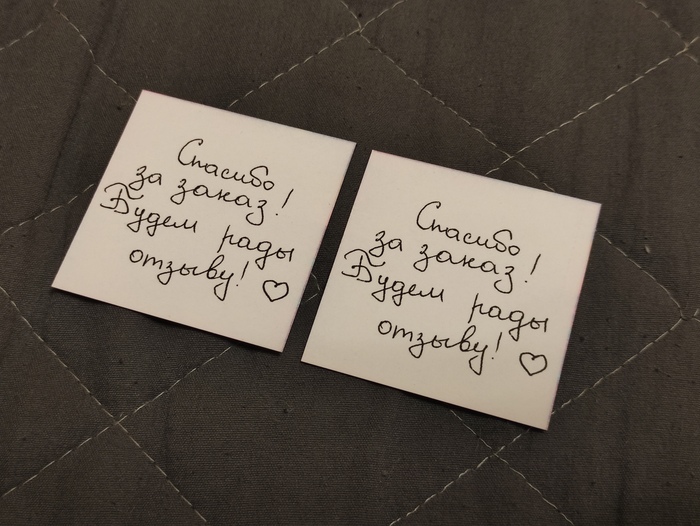 Спасибо
за заказ!
Будем рады
отзыву! ♡
Спасибо
за заказ!
Будем рады
отзыву! ♡